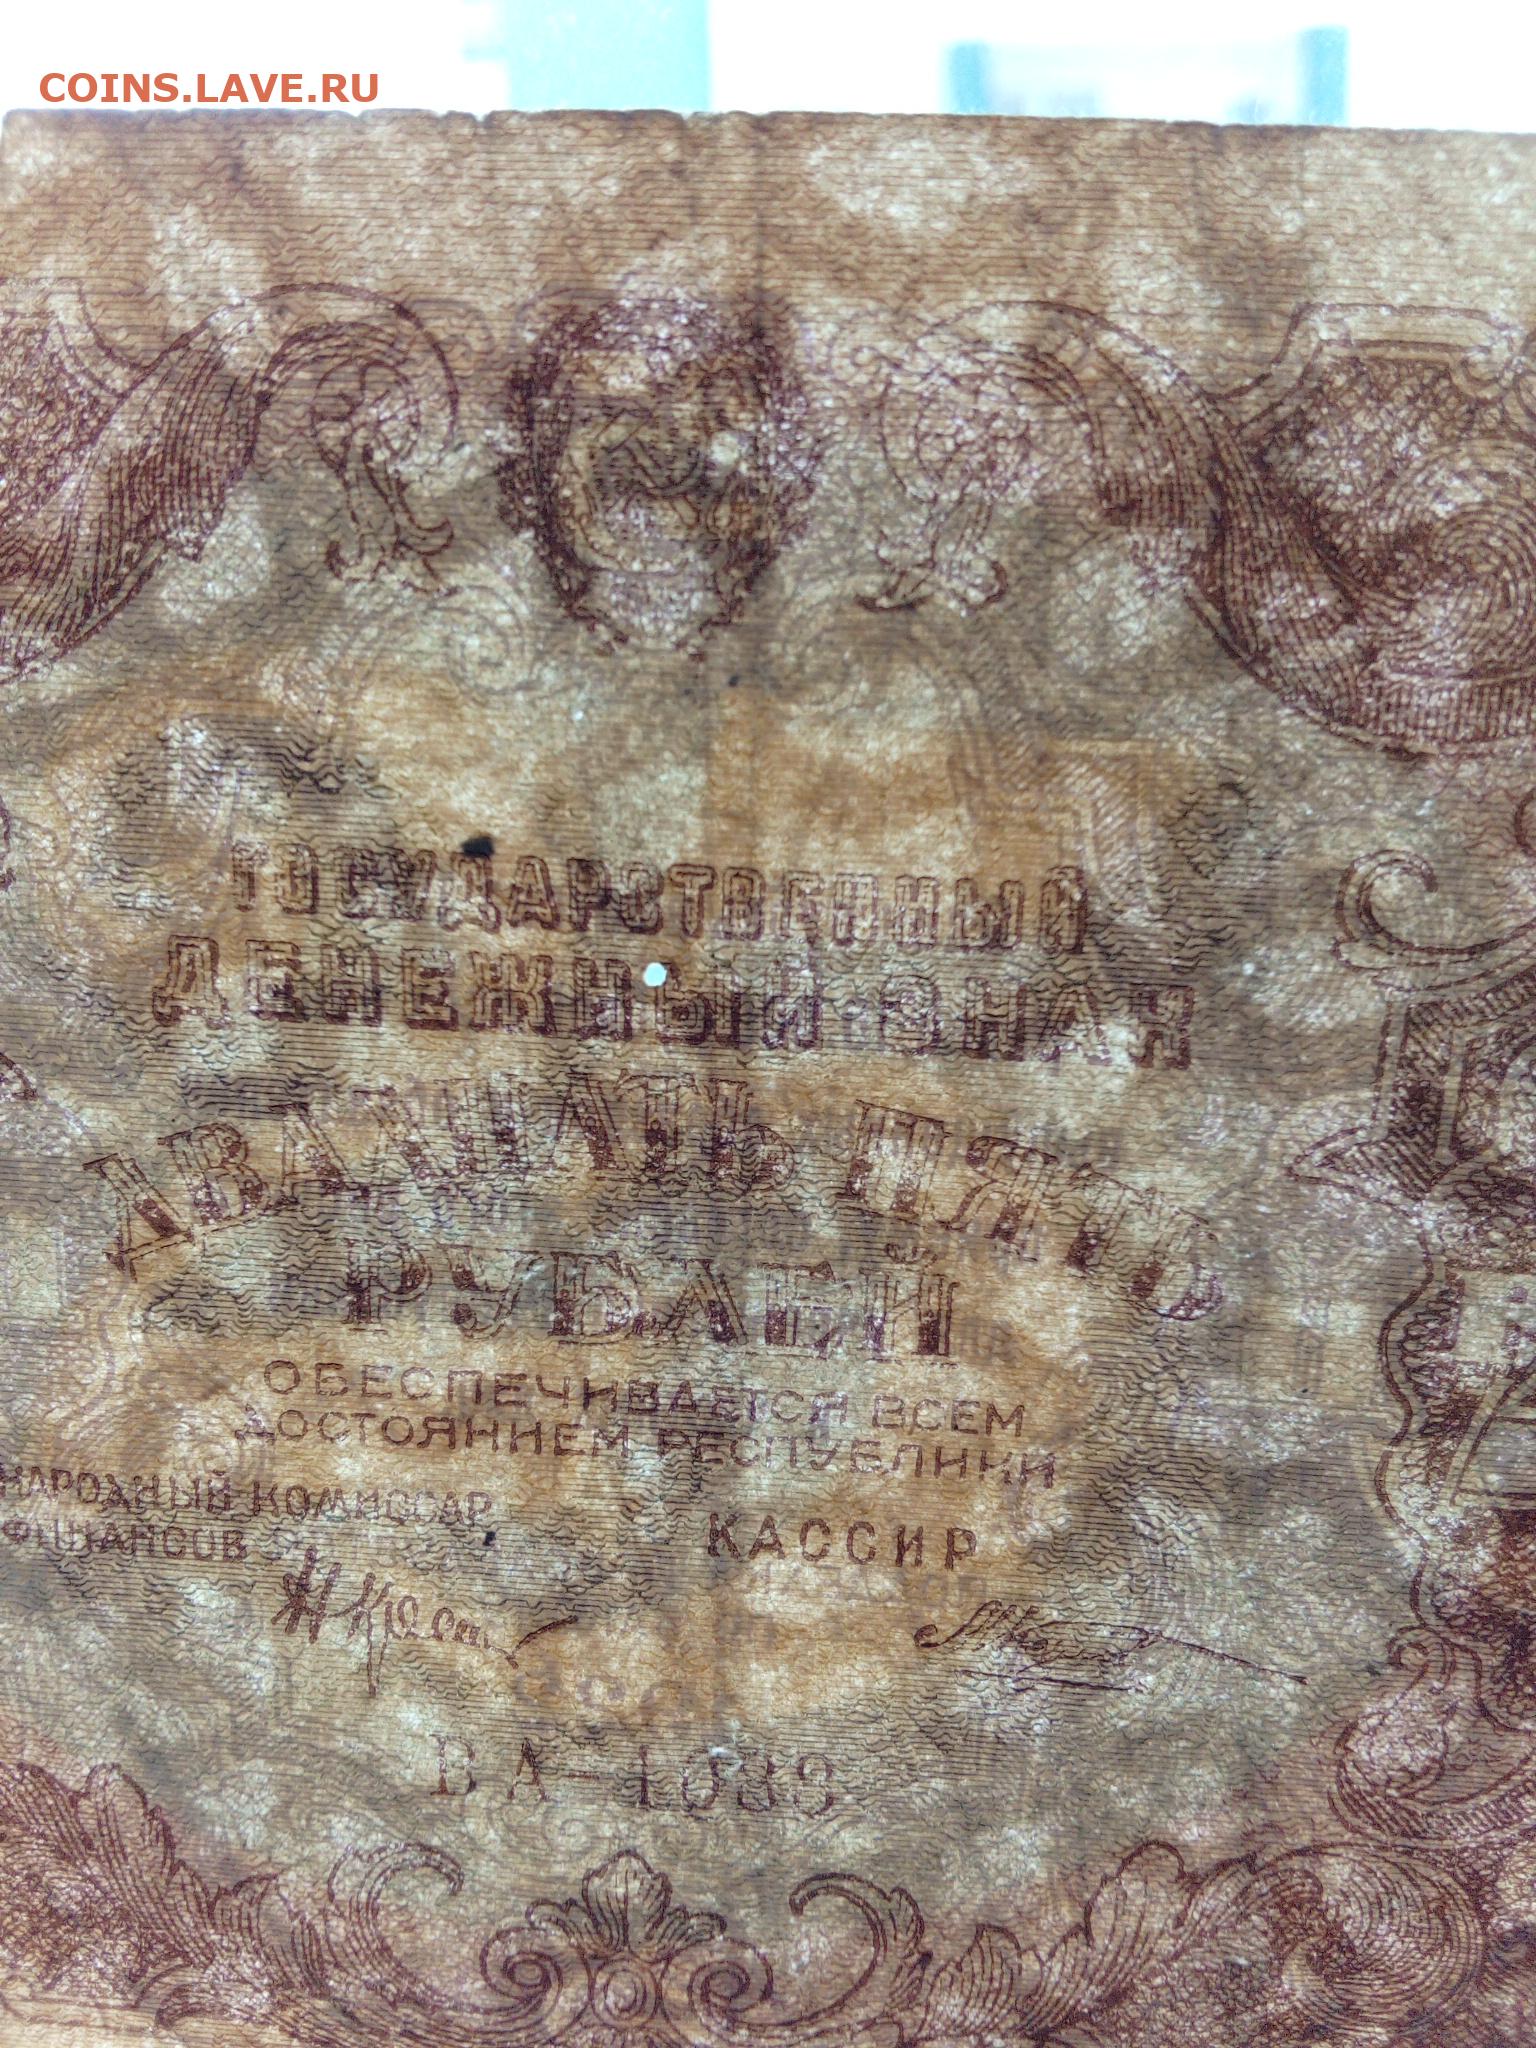 COINS.LAVE.RU
ГОСУДАРСТВЕННЫЙ
ДЕНЕЖНЫЙ ЗНАК
ДВАДЦАТЬ ПЯТЬ
РУБЛЕЙ
ОБЕСПЕЧИВАЕТСЯ ВСЕМ
ДОСТОЯНИЕМ РЕСПУБЛИКИ
НАРОДНЫЙ КОМИССАР
ФИНАНСОВ
КАССИР